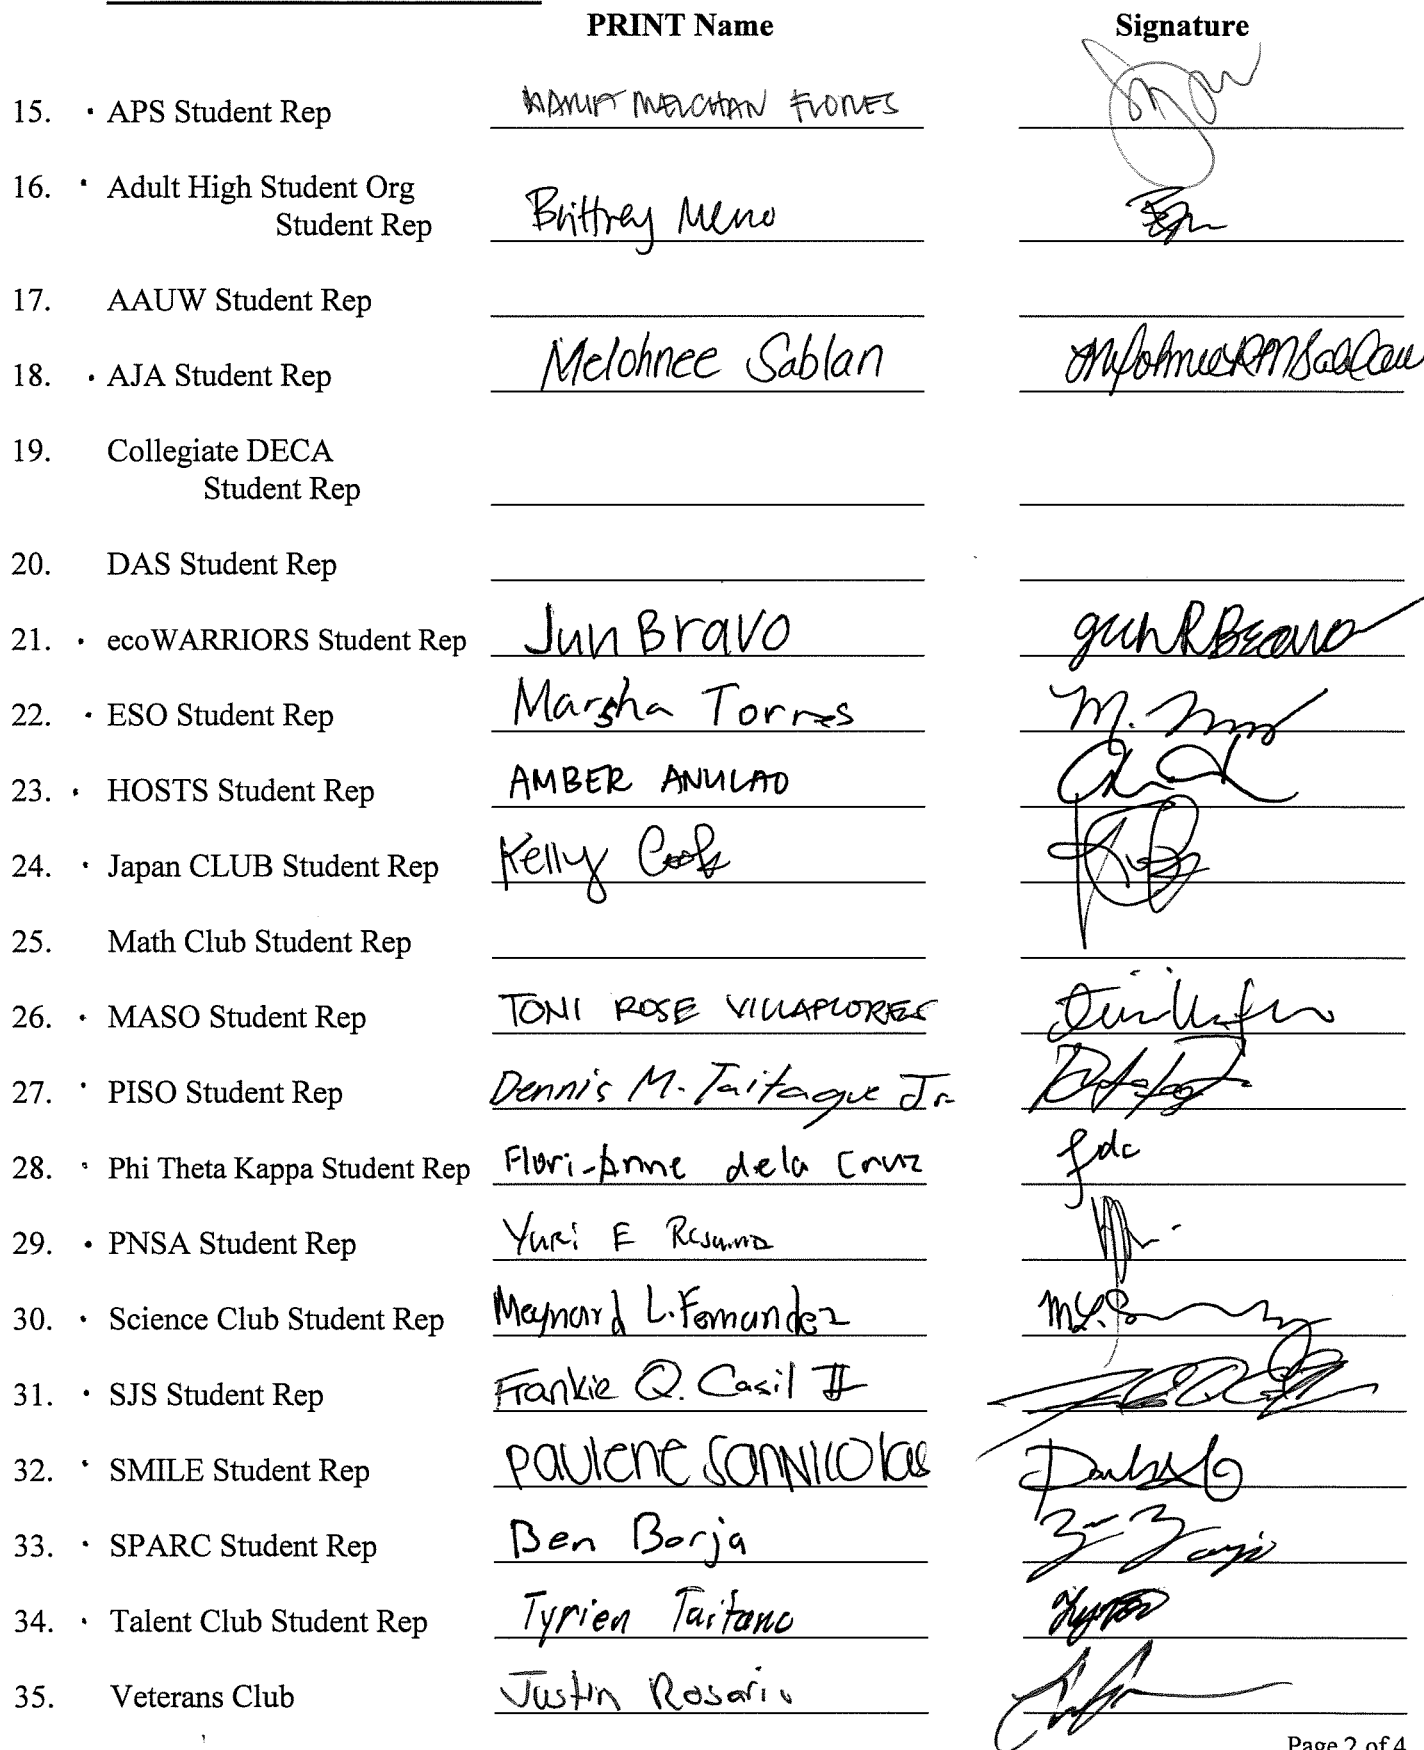 PRINT Name Signature
15. · APS Student Rep MELCHAN FLORES
16. · Adult High Student Org
Student Rep Brittney Meno
17. AAUW Student Rep
18. · AJA Student Rep Melohnee Sablan
19. Collegiate DECA
Student Rep
20. DAS Student Rep
21. · ecoWARRIORS Student Rep Jun Bravo
22. · ESO Student Rep Marsha Torres M.
23. · HOSTS Student Rep AMBER ANULAO
24. · Japan CLUB Student Rep Kelly
25. Math Club Student Rep
26. · MASO Student Rep TONI ROSE VILLAFLORES
27. · PISO Student Rep Dennis M. Taitague Jr.
28. · Phi Theta Kappa Student Rep Flori-Anne dela Cruz fdc
29. · PNSA Student Rep Yuri E
30. · Science Club Student Rep Maynard L. Fernandez
31. · SJS Student Rep Frankie Q. Casil II
32. · SMILE Student Rep Paulene San Nicolas
33. · SPARC Student Rep Ben Borja
34. · Talent Club Student Rep Tyrien Taitano
35. Veterans Club Justin Rosario
Page 2 of 4